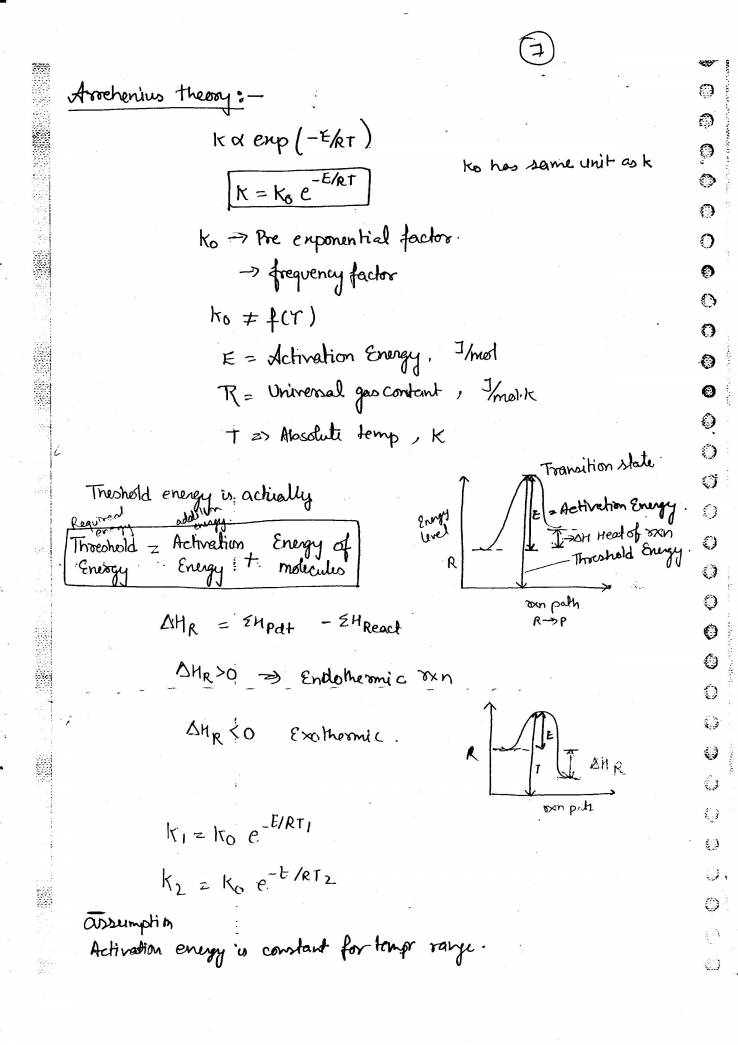 7
Arrehenius theory :-
k α exp (-E/RT)
k = k₀ e^-E/RT
k₀ has same unit as k
k₀ → Pre exponential factor.
→ frequency factor
k₀ ≠ f(T)
E = Activation Energy, J/mol
R = Universal gas contant, J/mol.K
T => Absolute temp, K
Transition state
Threshold energy is actually
Energy level
E = Activation Energy.
Required energy
addition energy
ΔH Heat of rxn
Threshold Energy = Activation Energy + Energy of molecules
Threshold Energy.
R
rxn path
R→P
ΔH_R = ΣH_Pdt - ΣH_React
ΔH_R >0 => Endothermic rxn
ΔH_R <0 Exothermic.
R
E
T
ΔH_R
rxn path
k₁ = k₀ e^-E/RT₁
k₂ = k₀ e^-E/RT₂
assumption
Activation energy is constant for tempr range.